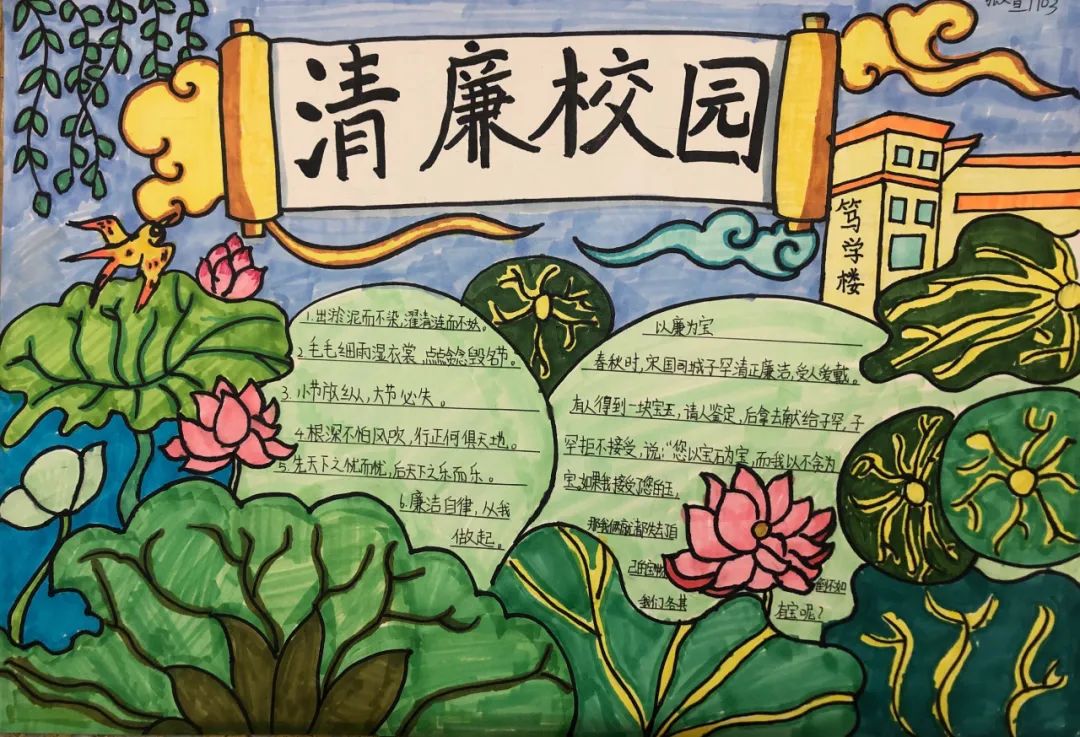 清廉校园
笃学楼
1.出淤泥而不染,濯清涟而不妖。
2.毛毛细雨湿衣裳 点点贪念毁名节。
3.小节放纵,大节必失。
4.根深不怕风吹,行正何惧天地。
5.先天下之忧而忧,后天下之乐而乐。
6.廉洁自律,从我
做起。
以廉为宝
春秋时,宋国司城子罕清正廉洁,受人爱戴。
有人得到一块宝玉,请人鉴定,后拿去献给子罕,子
罕拒不接受,说:“您以宝石为宝,而我以不贪为
宝,如果我接受了您的玉,
那我俩就都失去自
己的宝物
我们各其
有宝呢?